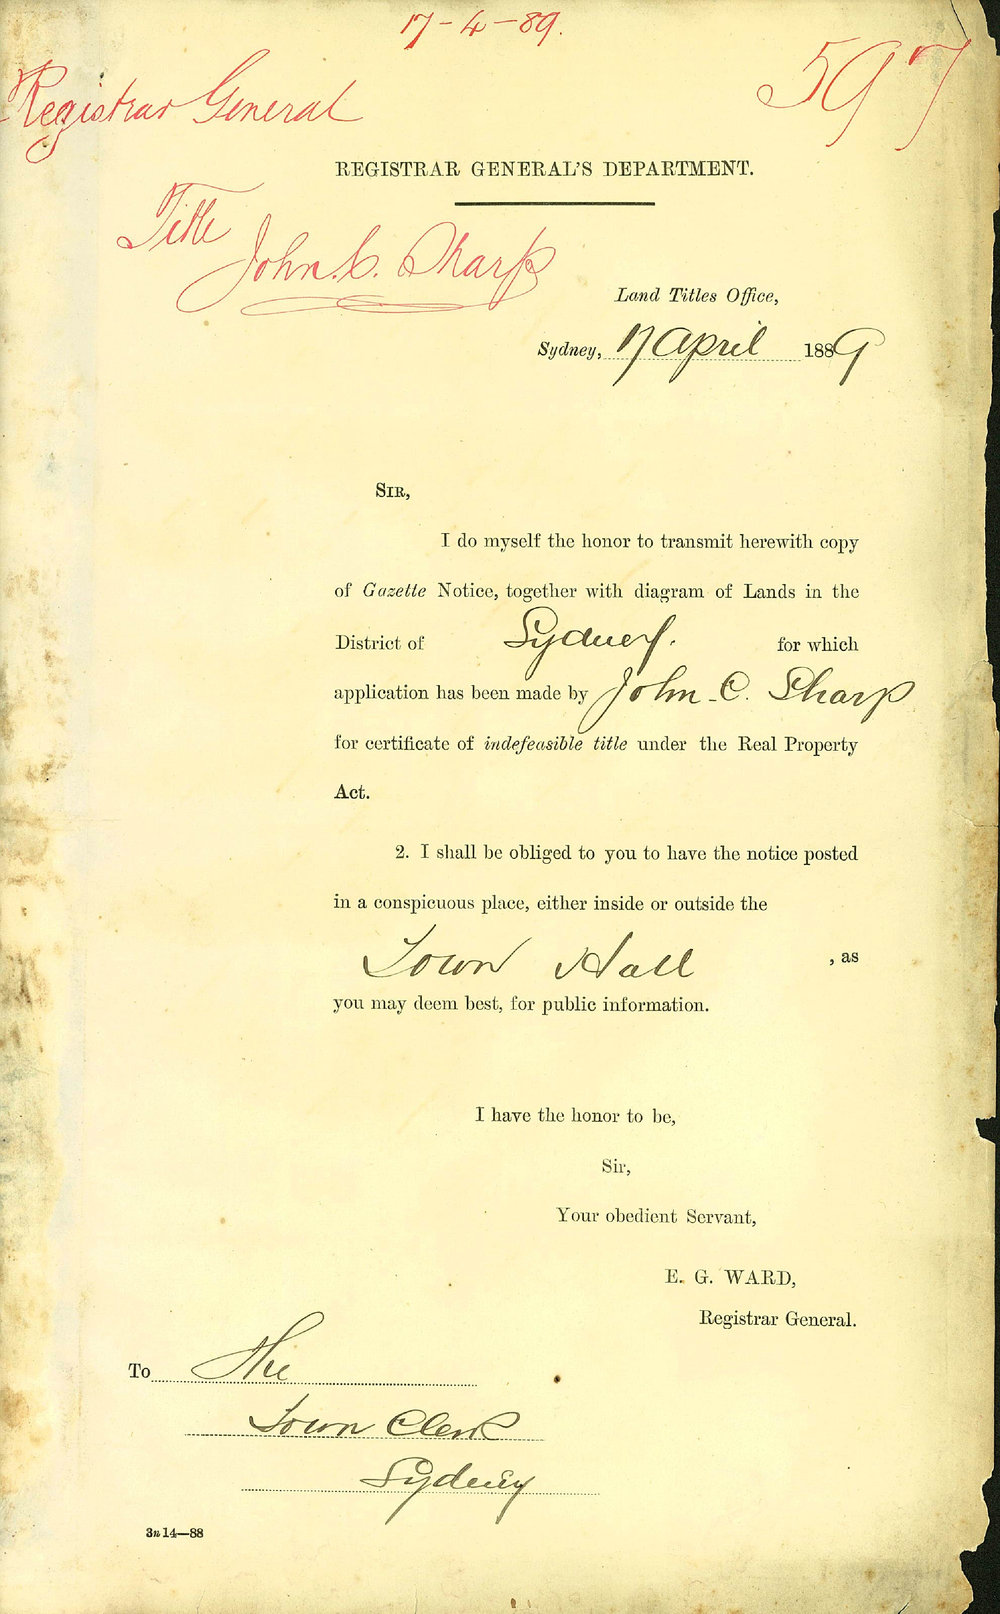 17-4-89.
Registrar General
597
REGISTRAR GENERAL'S DEPARTMENT.
Title
John. C. Sharp
Land Titles Office,
Sydney, 17 April 1889
SIR,
I do myself the honor to transmit herewith copy
of Gazette Notice, together with diagram of Lands in the
District of Sydney. for which
application has been made by John C. Sharp
for certificate of indefeasible title under the Real Property
Act.
2. I shall be obliged to you to have the notice posted
in a conspicuous place, either inside or outside the
Town Hall , as
you may deem best, for public information.
I have the honor to be,
Sir,
Your obedient Servant,
E. G. WARD,
Registrar General.
To The
Town Clerk
Sydney
3n 14—88